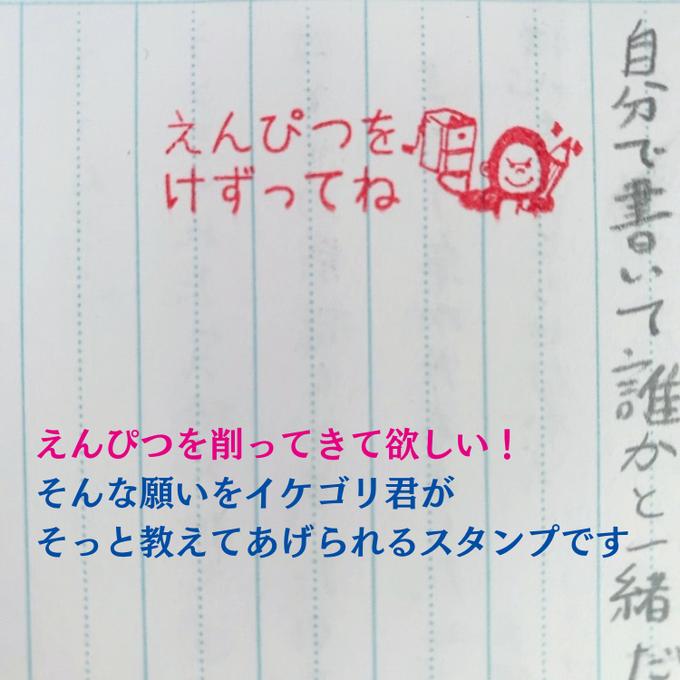 えんぴつを
けずってね
自分で書いて誰かと一緒だ
えんぴつを削ってきて欲しい！
そんな願いをイケゴリ君が
そっと教えてあげられるスタンプです